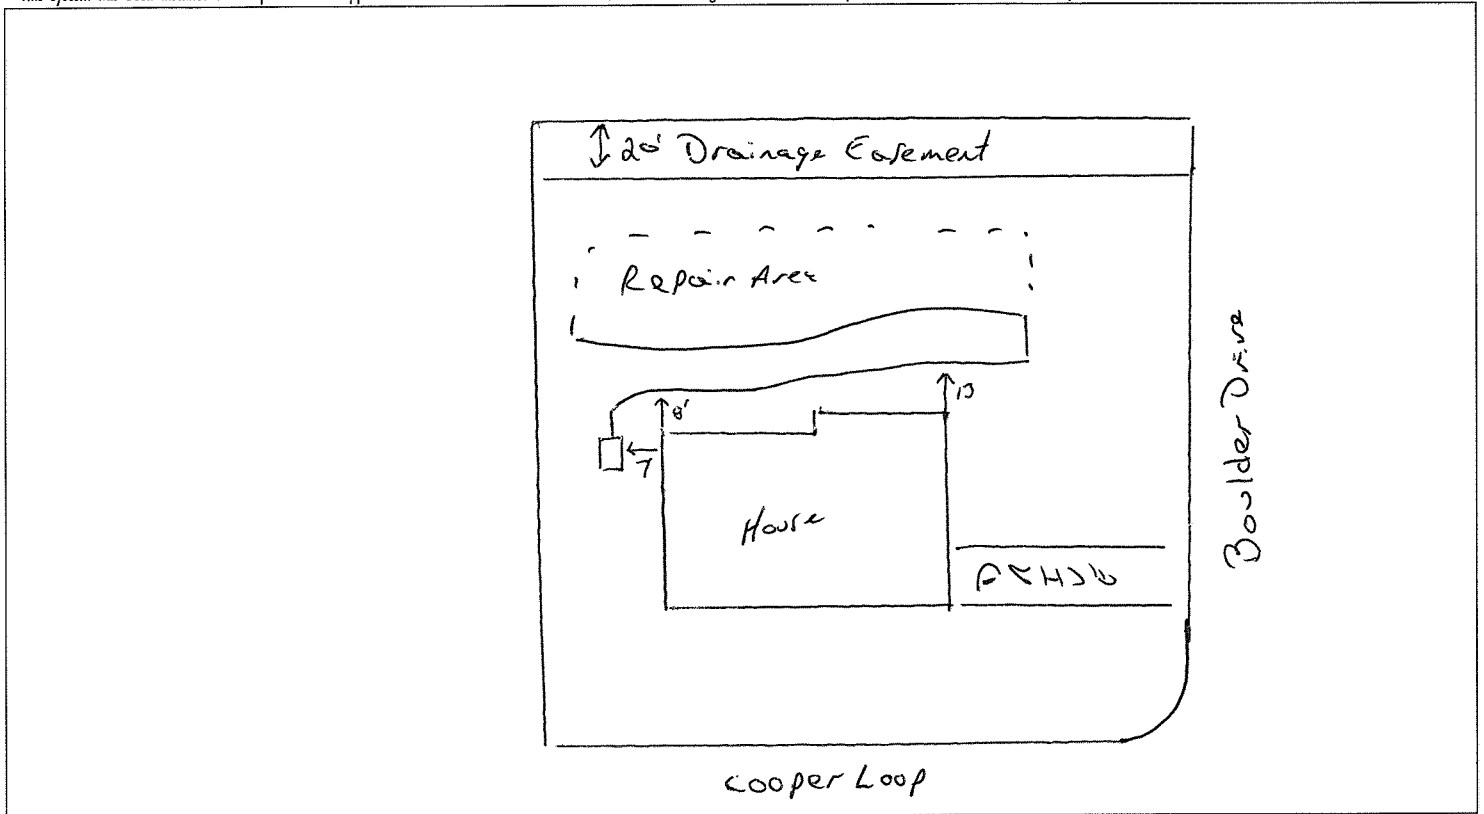 20' Drainage Easement
Repair Area
8'
13
7
House
Boulder Drive
Cooper Loop